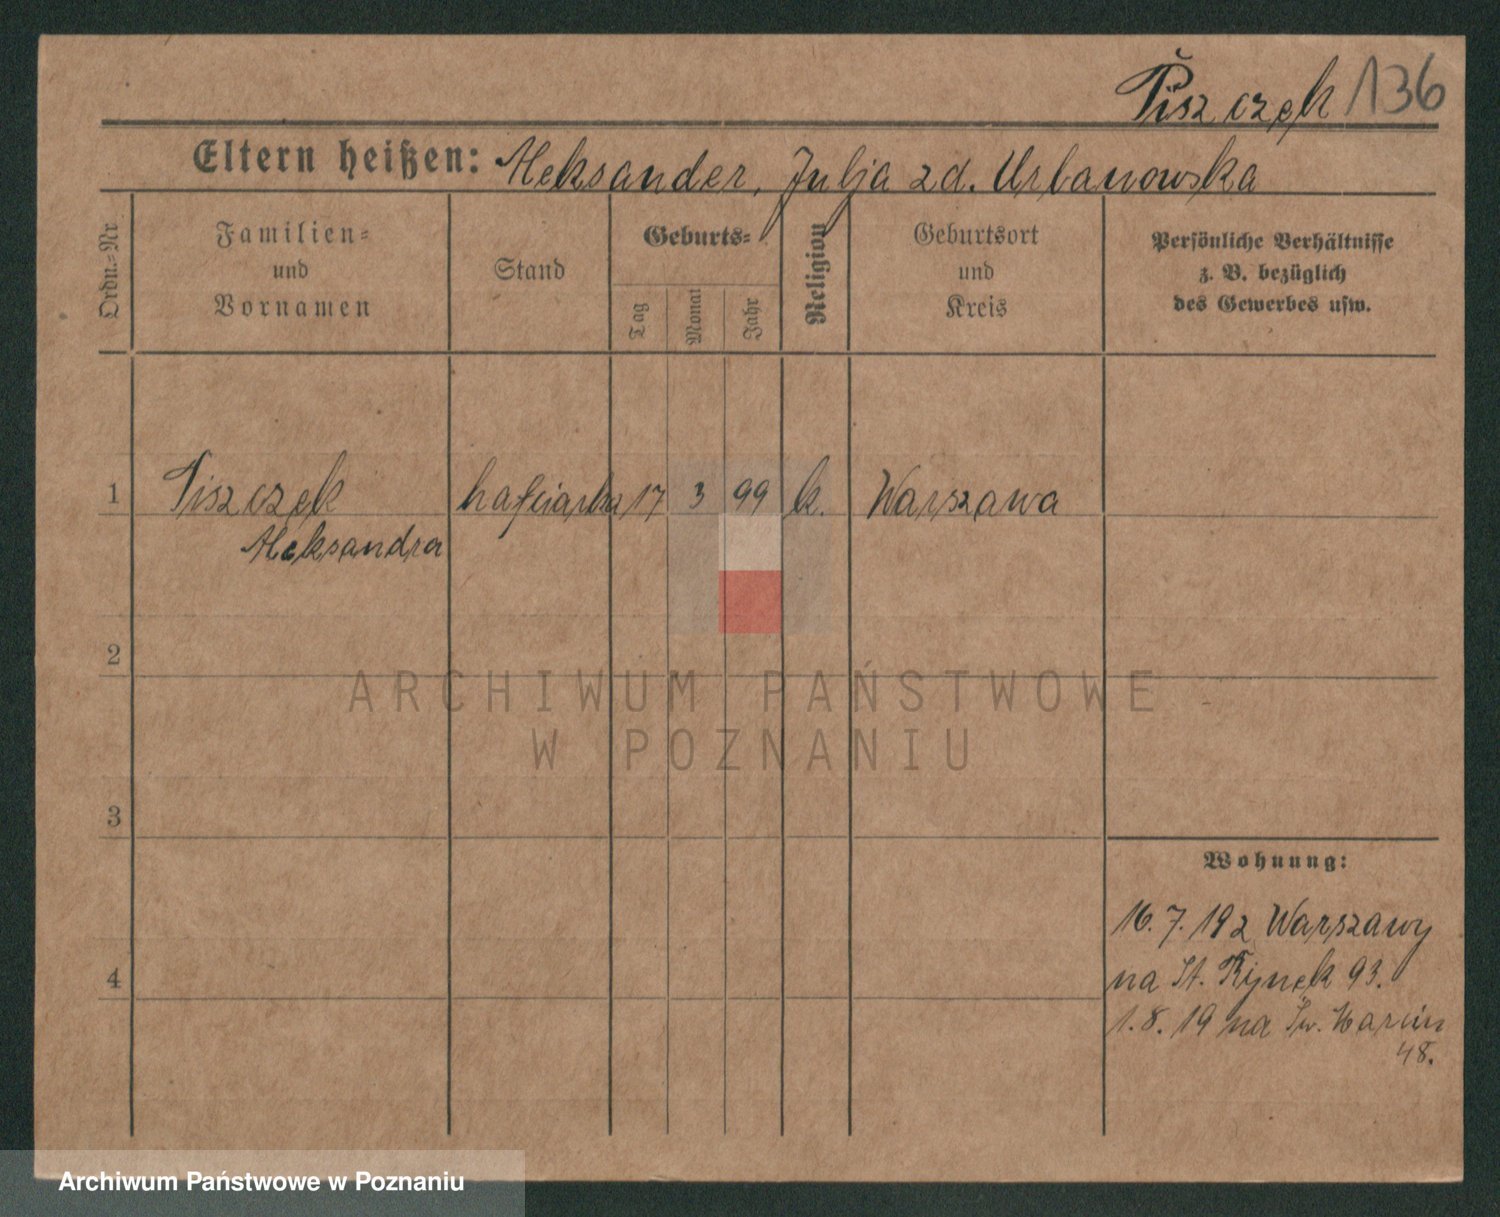 Piszczek 136
Eltern heißen: Aleksander, Julja zd. Urbanowska
Ordn.-Nr.
Familien-
und
Vornamen
Stand
Geburts-
Tag
Monat
Jahr
Religion
Geburtsort
und
Kreis
Persönliche Verhältnisse
z. B. bezüglich
des Gewerbes usw.
1 Piszczek hafciarka 17 3 99 k. Warszawa
Aleksandra
2
ARCHIWUM PAŃSTWOWE
W POZNANIU
3
Wohnung:
16.7.19 z Warszawy
na St. Rynek 93.
4
1.8.19 na Św. Marcin
48.
Archiwum Państwowe w Poznaniu